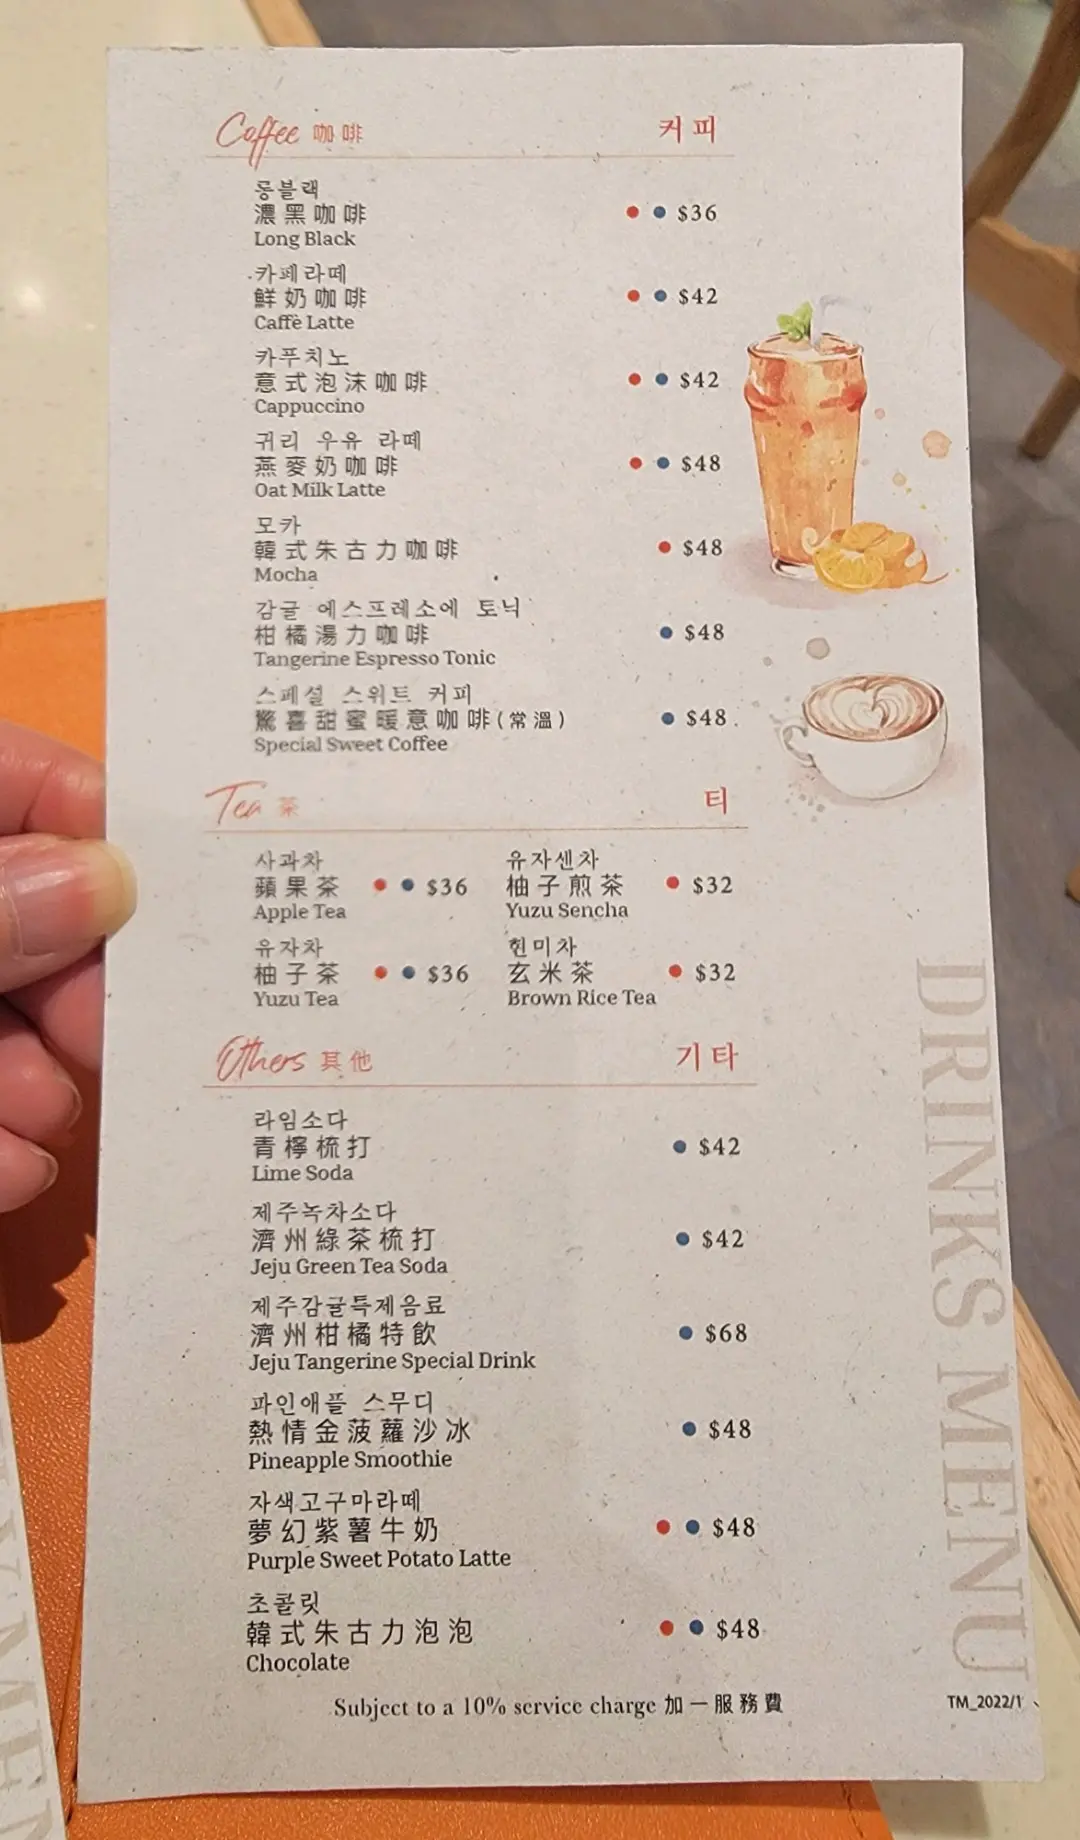 Coffee 咖啡 커피
롱블랙
濃黑咖啡 $36
Long Black
카페라떼
鮮奶咖啡 $42
Caffè Latte
카푸치노
意式泡沫咖啡 $42
Cappuccino
귀리 우유 라떼
燕麥奶咖啡 $48
Oat Milk Latte
모카
韓式朱古力咖啡 $48
Mocha
감귤 에스프레소에 토닉
柑橘湯力咖啡 $48
Tangerine Espresso Tonic
스페셜 스위트 커피
驚喜甜蜜暖意咖啡(常溫) $48
Special Sweet Coffee
Tea 茶 티
사과차 유자센차
蘋果茶 $36 柚子煎茶 $32
Apple Tea Yuzu Sencha
유자차 현미차
柚子茶 $36 玄米茶 $32
Yuzu Tea Brown Rice Tea
Others 其他 기타
라임소다
青檸梳打 $42
Lime Soda
제주녹차소다
濟州綠茶梳打 $42
Jeju Green Tea Soda
제주감귤특제음료
濟州柑橘特飲 $68
Jeju Tangerine Special Drink
파인애플 스무디
熱情金菠蘿沙冰 $48
Pineapple Smoothie
자색고구마라떼
夢幻紫薯牛奶 $48
Purple Sweet Potato Latte
초콜릿
韓式朱古力泡泡 $48
Chocolate
Subject to a 10% service charge 加一服務費
DRINKS MENU